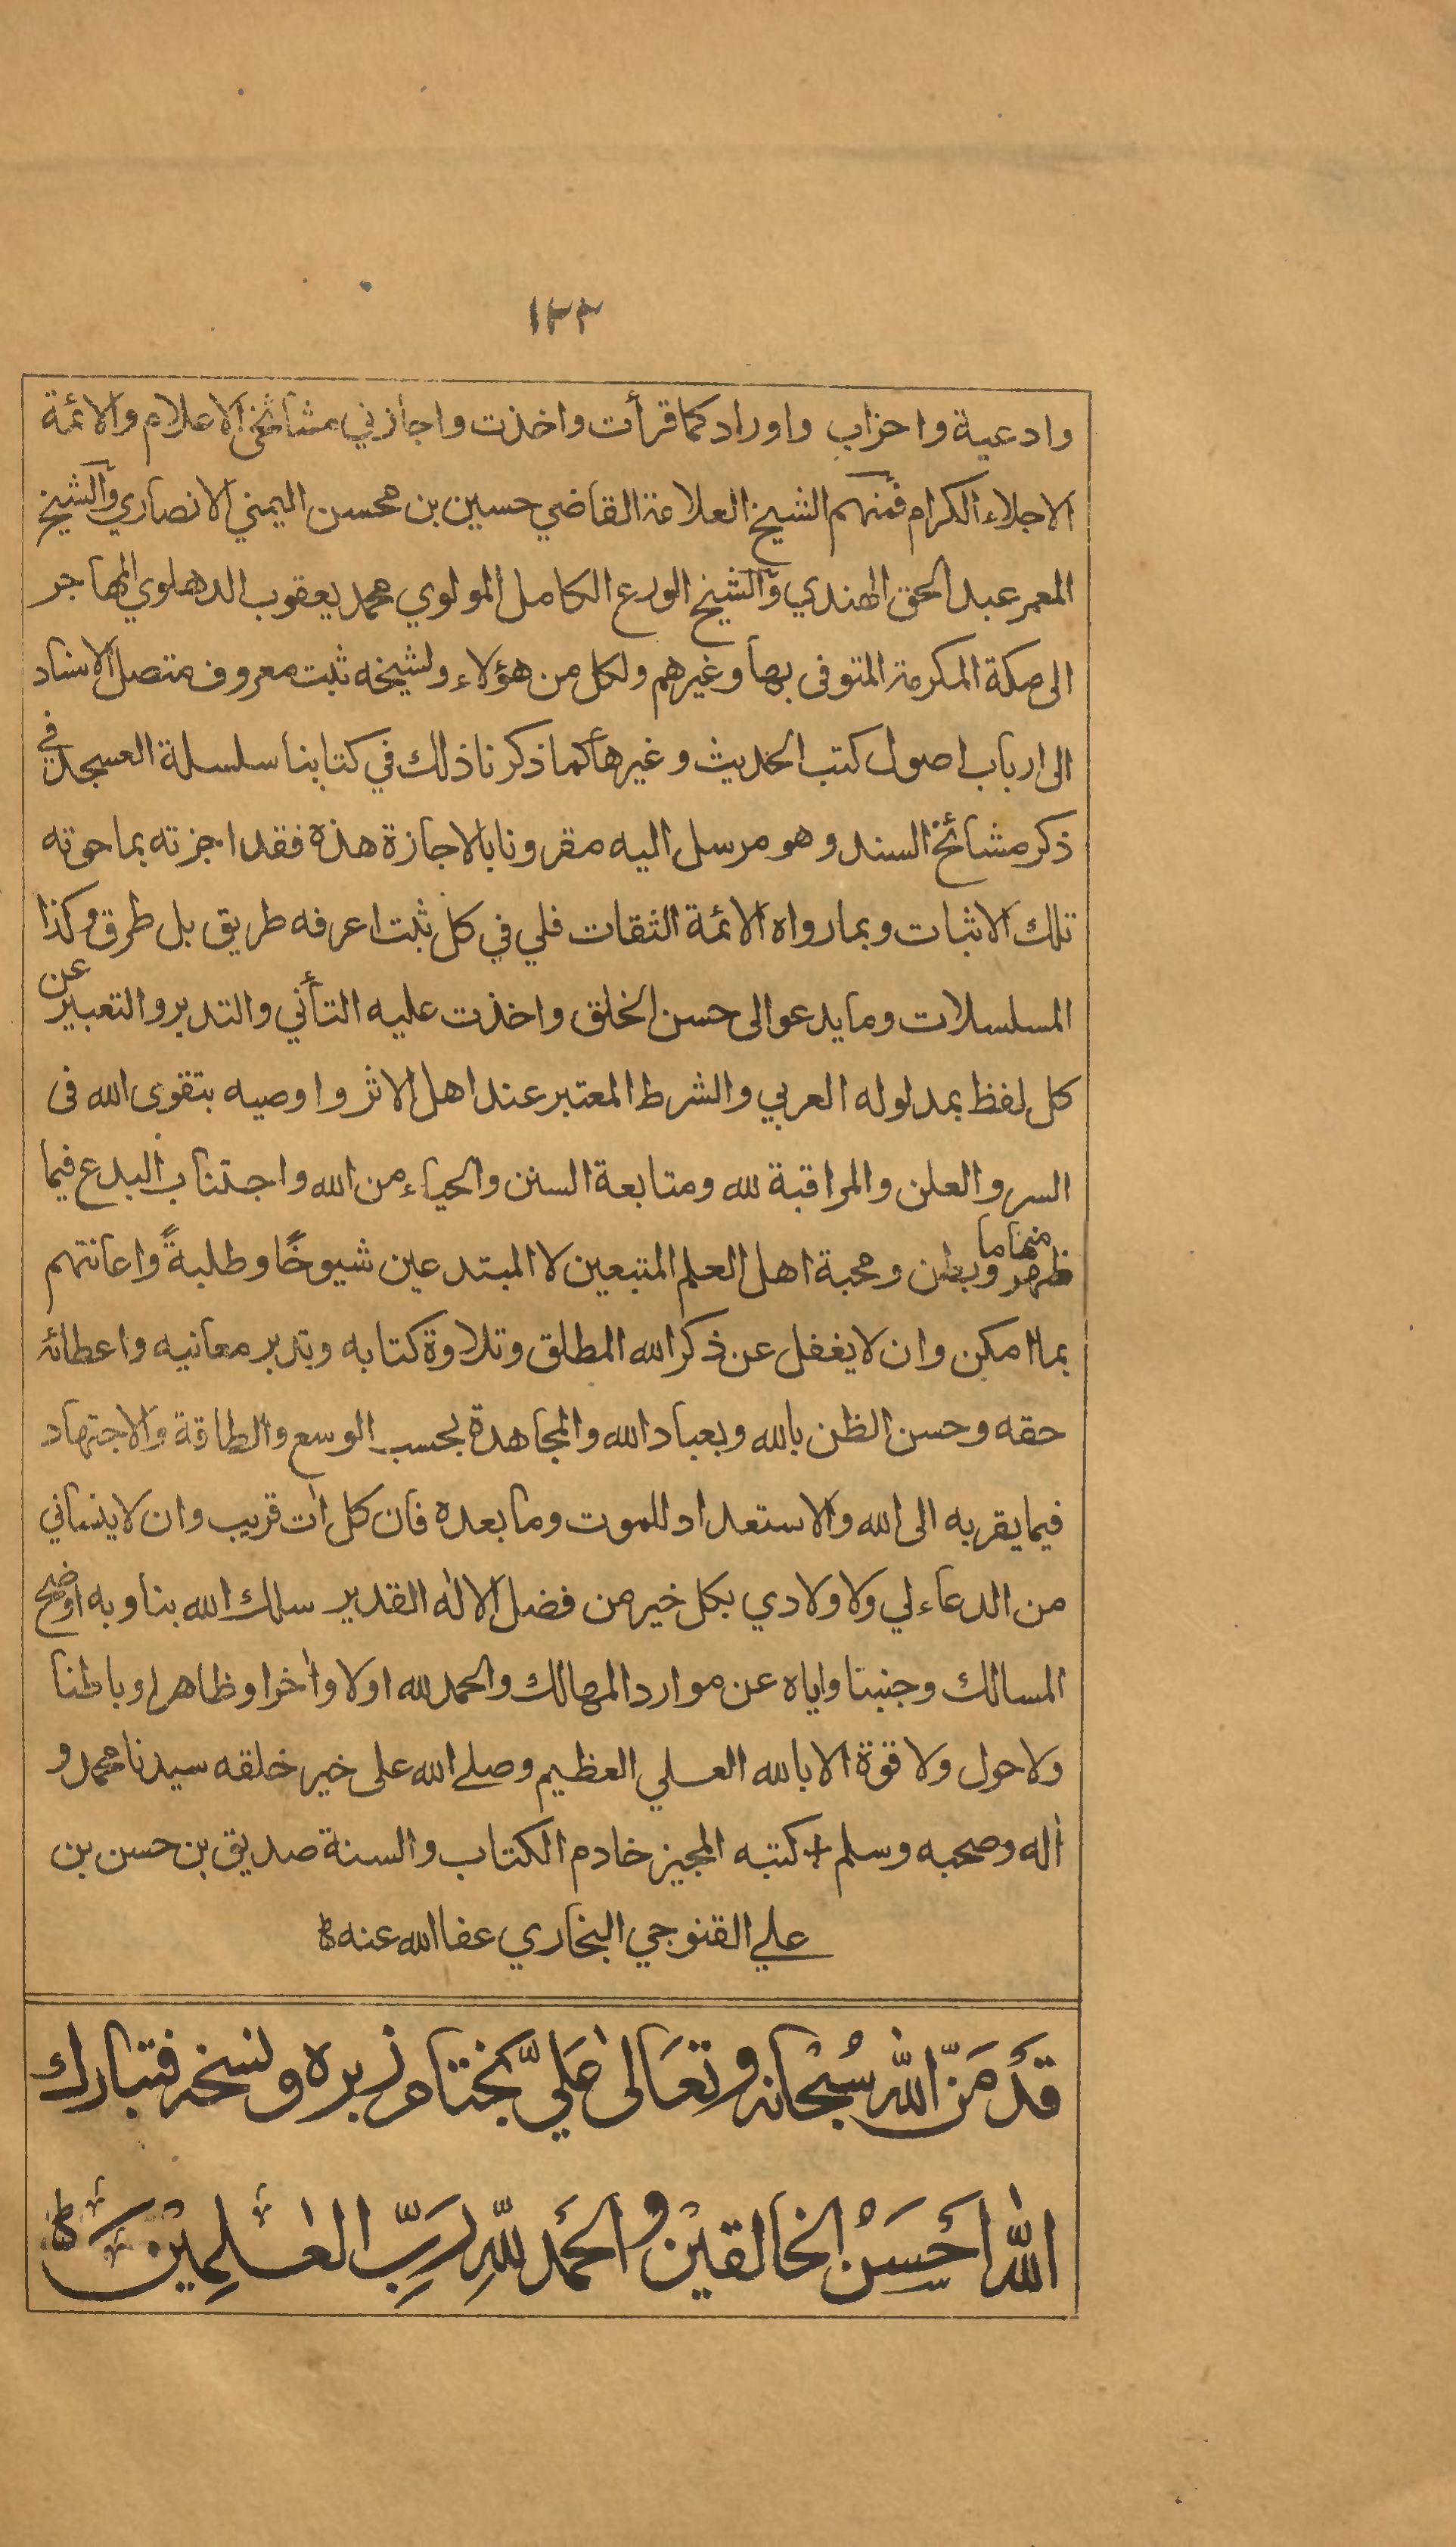 ١٢٣
وادعية واحزاب واوراد كما قرأت واخذت واجازني مشائخي الاعلام والائمة
الاجلاء الكرام فمنهم الشيخ العلامة القاضي حسين بن محسن اليمني الانصاري والشيخ
المعمر عبد الحق الهندي والشيخ الورع الكامل المولوي محمد يعقوب الدهلوي المهاجر
الى مكة المكرمة المتوفى بها وغيرهم ولكل من هؤلاء ولشيخه ثبت معروف متصل الاسناد
الى ارباب اصول كتب الحديث وغيرها كما ذكرنا ذلك في كتابنا سلسلة العسجد في
ذكر مشائخ السند وهو مرسل اليه مقرونا بالاجازة هذه فقد اجزته بما حوته
تلك الاثبات وبما رواه الائمة الثقات فلي في كل ثبت اعرفه طريق بل طرق وكذا
المسلسلات وما يدعو الى حسن الخلق واخذت عليه التأني والتدبر والتعبير عن
كل لفظ بمدلوله العربي والشرط المعتبر عند اهل الاثر واوصيه بتقوى الله فى
السر والعلن والمراقبة لله ومتابعة السنن والحياء من الله واجتناب البدع فيما
ظهر منها وما بطن ومحبة اهل العلم المتبعين لا المبتدعين شيوخًا وطلبةً واعانتهم
بما امكن وان لا يغفل عن ذكر الله المطلق وتلاوة كتابه وتدبر معانيه واعطائه
حقه وحسن الظن بالله وبعباد الله والمجاهدة بحسب الوسع والطاقة والاجتهاد
فيما يقربه الى الله والاستعداد للموت وما بعده فان كل اٰت قريب وان لا ينساني
من الدعاء لي ولاولادي بكل خير من فضل الاله القدير سلك الله بنا وبه اوضح
المسالك وجنبنا واياه عن موارد المهالك والحمد لله اولا واٰخرا وظاهرا وباطنا
ولا حول ولا قوة الا بالله العلي العظيم وصلے الله على خير خلقه سيدنا محمد و
اٰله وصحبه وسلم + كتبه المجيز خادم الكتاب والسنة صديق بن حسن بن
علي القنوجي البخاري عفا الله عنه
قَدْ مَنَّ اللهُ سُبْحَانه وتعَالىٰ عَلَيَّ بختام زبره ونسخه فتبارك
اللهُ اَحْسَنُ الخالقيْن والحَمْد للهِ رَبِّ العٰلمِيْن